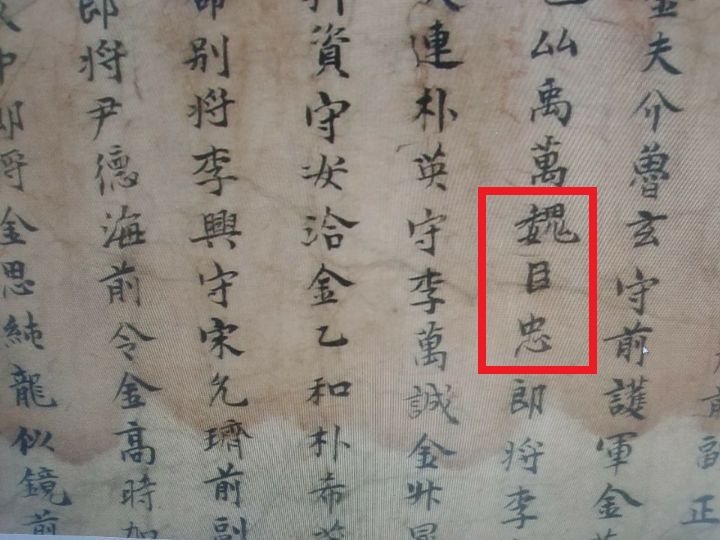 副正
夫介魯玄守前護軍金
厸禹萬魏目忠郎将李
連朴英守李萬誠金
資守安洽金乙和朴希
別将李興守宋允璹前副
郎将尹德海前令金高時加
中郎将金思純龍似鏡前